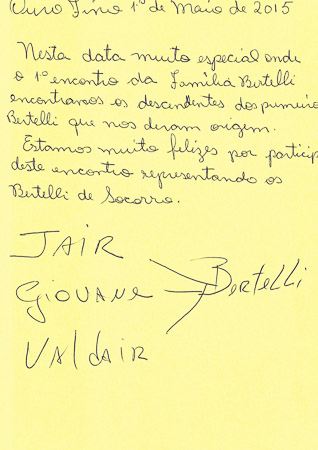 Ouro Fino 1º de Maio de 2015
Nesta data muito especial onde
o 1º encontro da Família Bertelli
encontramos os descendentes dos primeiro
Bertelli que nos deram origem.
Estamos muito felizes por particip
deste encontro representando os
Bertelli de Socorro.
JAIR
Giovane Bertelli
Valdair